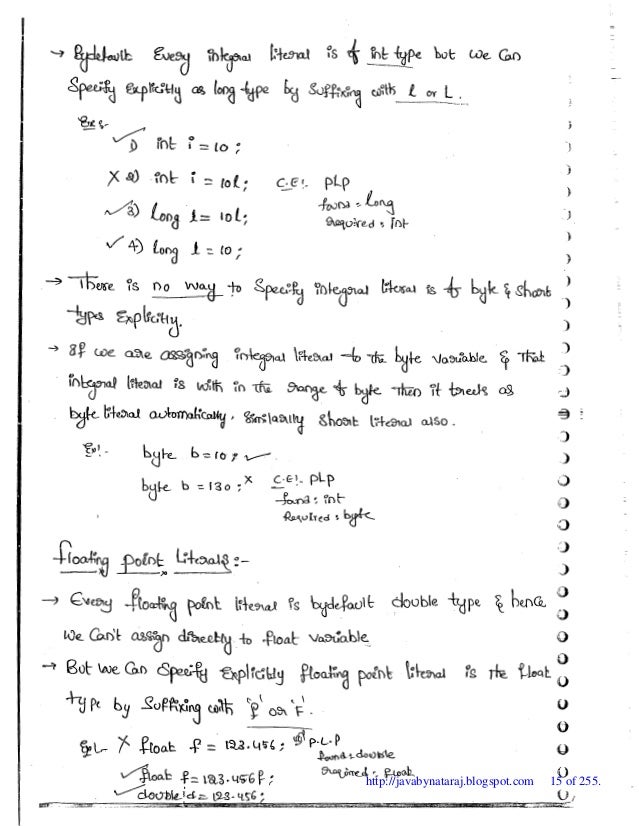 → Bydefault Every integral literal is of int type but we can
Specify Explicitly as long type by suffixing with l or L.
Ex:-
✓ 1) int i = 10;
X 2) int i = 10l; C.E!. PLP
found : long
required : int
✓ 3) long l = 10l;
✓ 4) long l = 10;
→ There is no way to Specify integral literal is of byte & short
types Explicitly.
→ If we are assigning integral literal to the byte variable & that
integral literal is with in the range of byte then it treets as
byte literal automatically. similarly short literal also.
Ex!.
byte b = 10; ✓
byte b = 130; X C.E!. PLP
found : int
Required : byte
floating point Literals:-
→ Every floating point literal is bydefault double type & hence
we can't assign directly to float variable
→ But we can Specify Explicitly floating point literal is the float
type by suffixing with 'f' or 'F'.
Ex:- X float f = 123.456; P.L.P
found : double
required : float
✓ float f = 123.456f;
✓ double d = 123.456;
http://javabynataraj.blogspot.com 15 of 255.